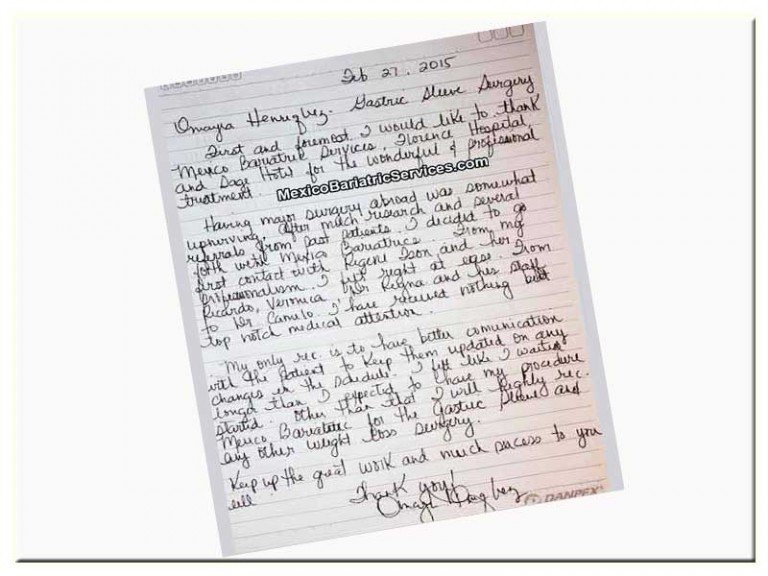 Feb 27, 2015
Omayra Henriquez - Gastric Sleeve Surgery
First and foremost I would like to thank
Mexico Bariatric Services, Florence Hospital,
and Sage Hotel for the wonderful & professional
treatment.
MexicoBariatricServices.com
Having major surgery abroad was somewhat
unnerving. After much research and several
referrals from past patients I decided to go
forth with Mexico Bariatrics. From my
first contact with and her
professionalism I felt right at ease. From
Ricardo, Veronica and his staff
to Dr Camilo I have received nothing but
top notch medical attention.
My only rec. is to have better comunication
with the patient to keep them updated on any
changes in the schedule. I felt like I waited
longer than I expected to have my procedure
started. Other than that I will highly rec.
Mexico Bariatric for the Gastric Sleeve and
any other weight loss surgery.
Keep up the great work and much success to you
all.
Thank you!
DANPEX